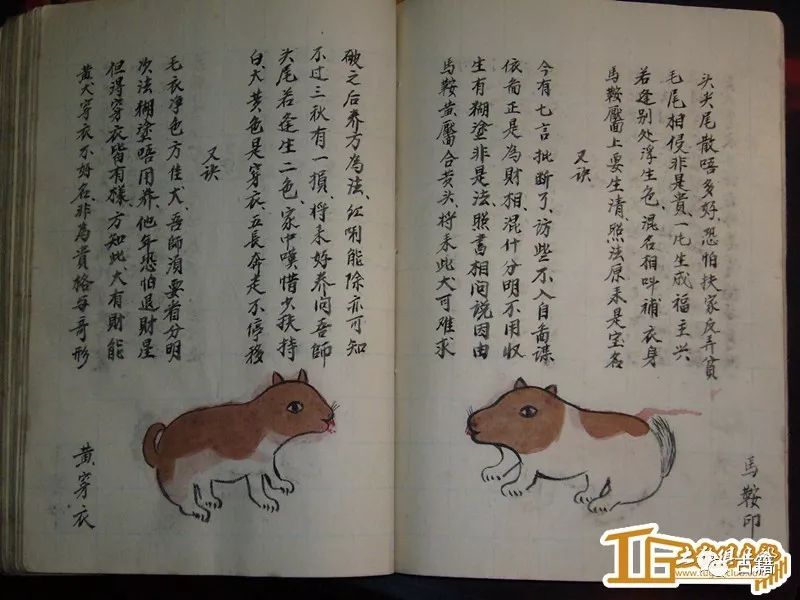 馬鞍印
头尖尾散唔多好、恐怕扶家反弄貧
毛尾相侵非是貴、一片生成福主兴
若逢别处浮生色、混名相叫補衣身
馬鞍壓面上要生清、照法原来是宝名
又诀
今有七言批断了、访些不入自面谋
依吾正是為財相、混什分明不用収
生有糊塗非是法照書相问説因由
馬鞍黄靨合黄头将来此犬可难求
破之后养方為法、红唎能除亦可知
不过三秋有一損、将来好养问吾師
头尾若逢生二色、家中嘆惜少扶持
白犬黄色是穿衣五長奔走不停移
又诀
毛衣净色方佳犬、吾師须要看分明
次法糊塗唔用养、他年恐怕退財星
但得穿衣皆有樣、方知此犬有財能
黄犬穿衣不好名、非為貴格每哥形
黄穿衣
古籍